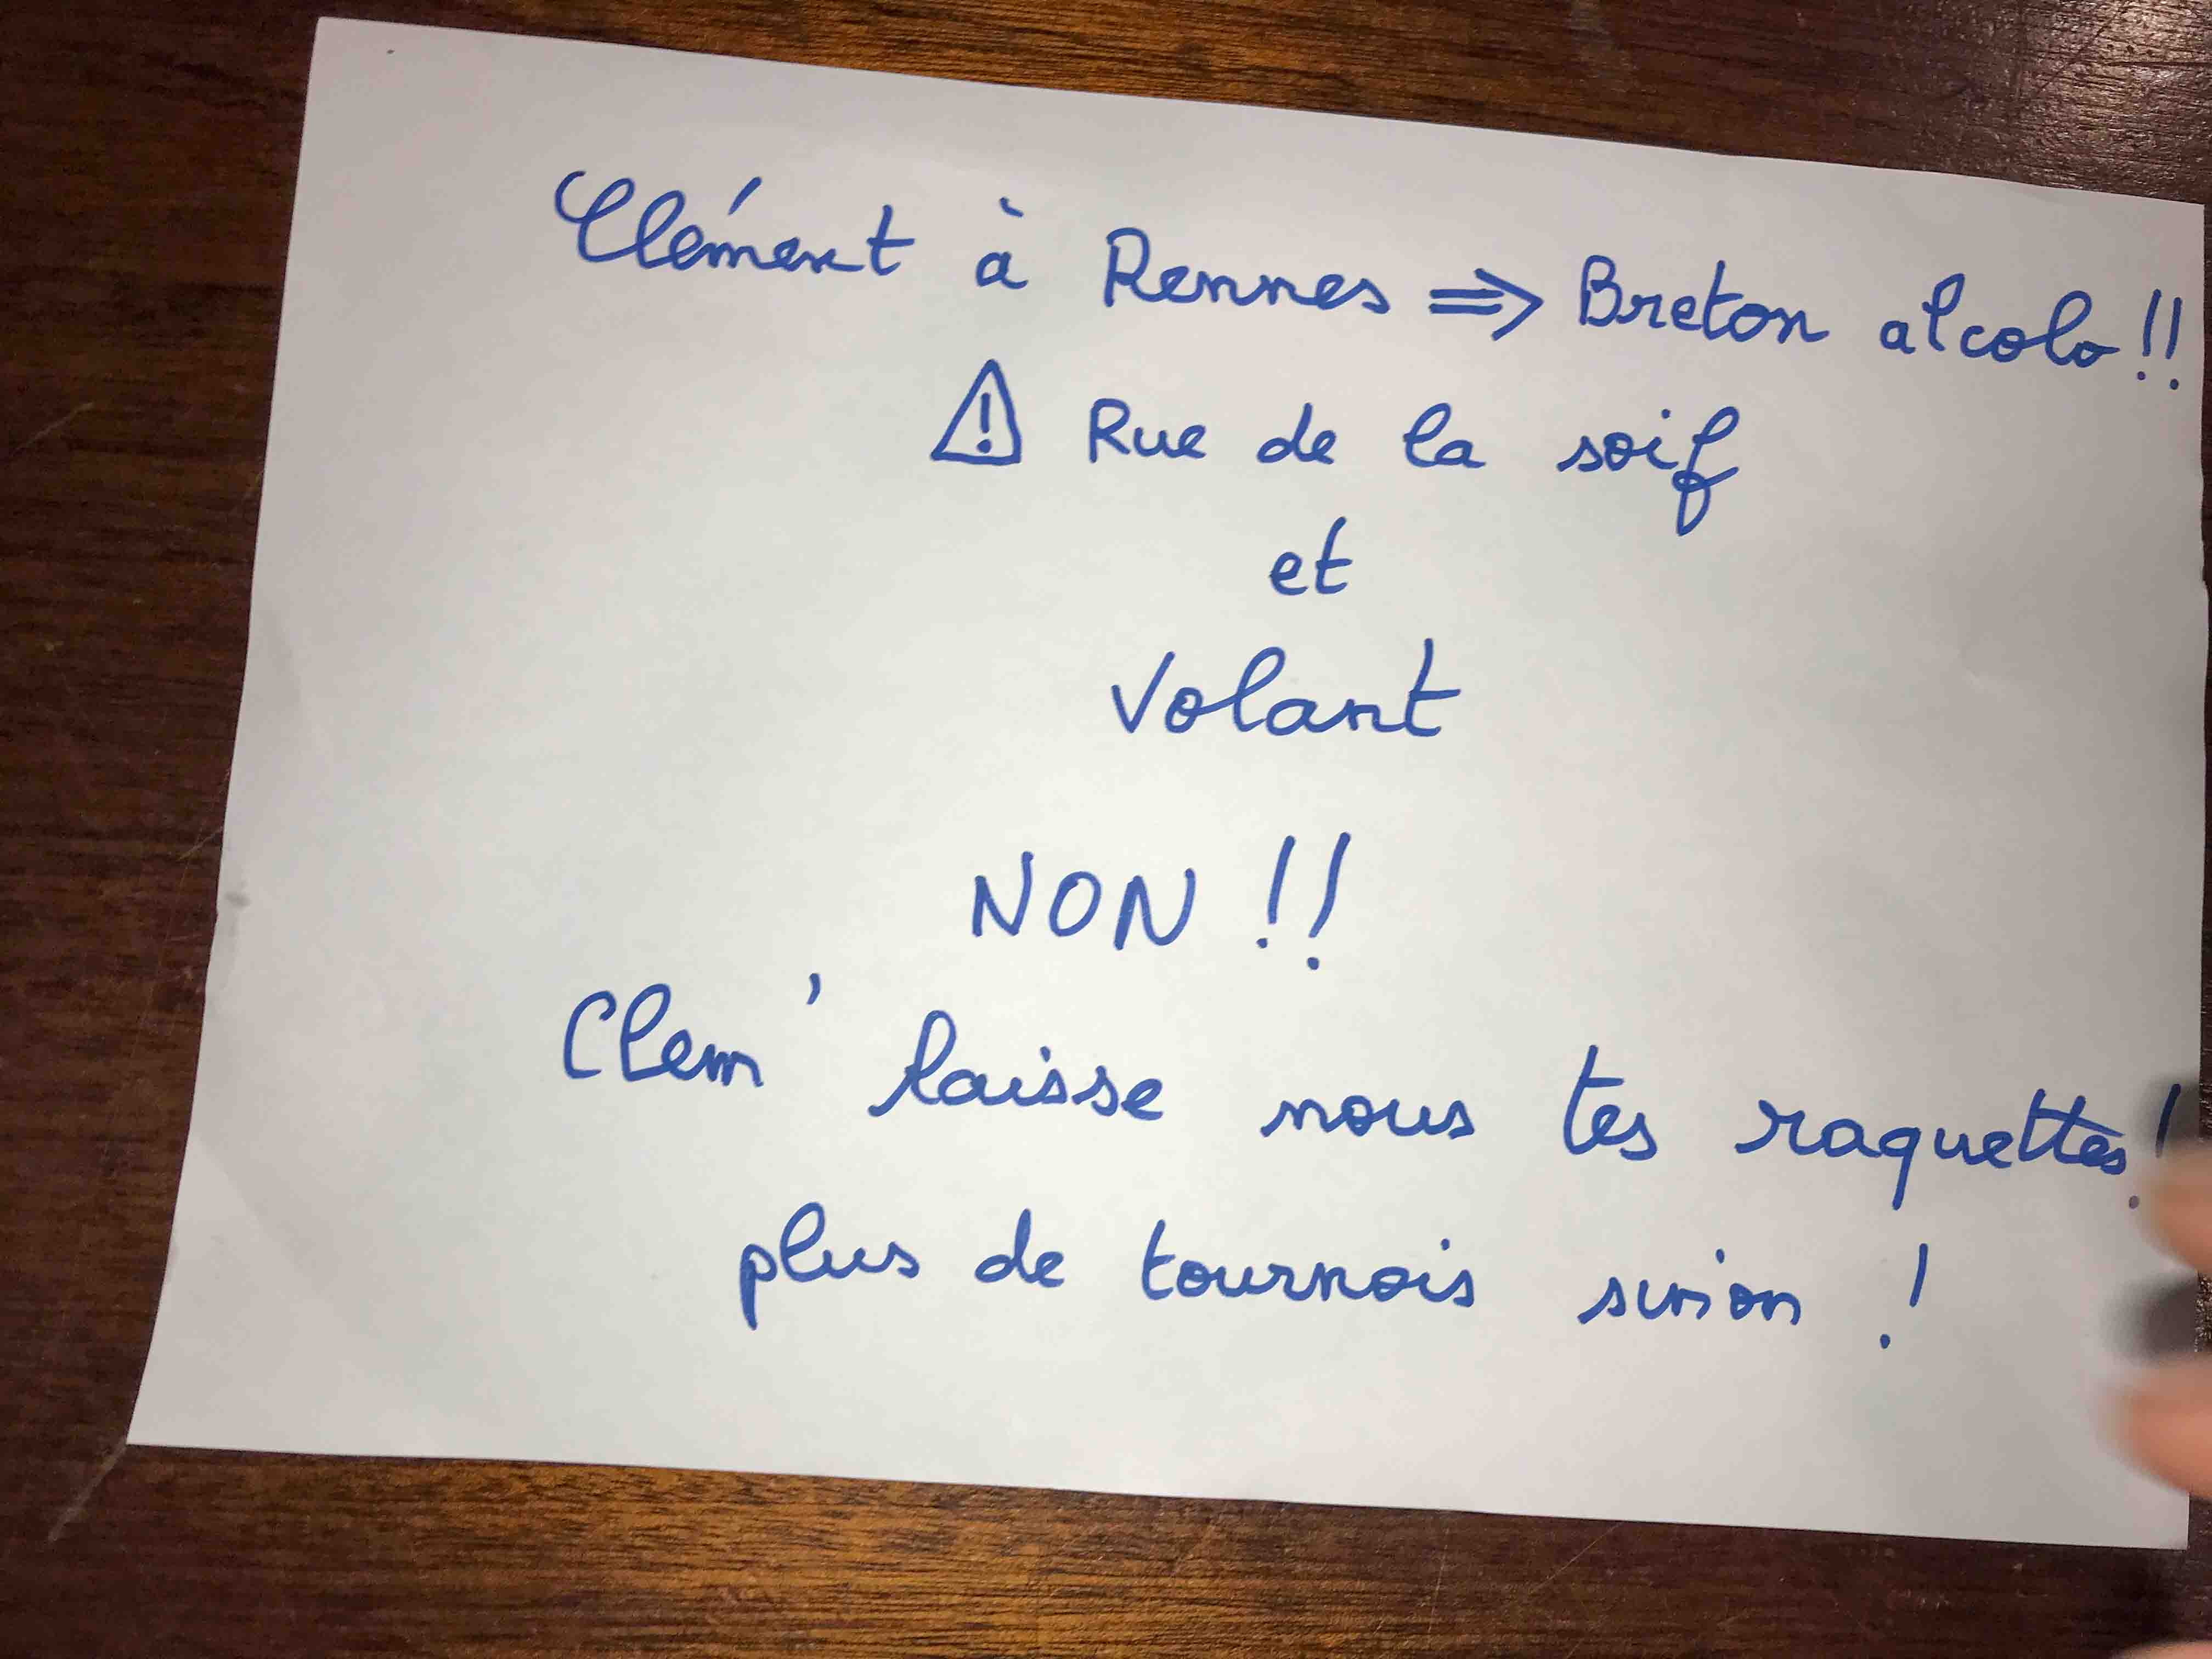 Clément à Rennes ⇒ Breton alcolo !!
⚠ Rue de la soif
et
Volant
NON !!
Clem' laisse nous tes raquettes !
plus de tournois sinon !